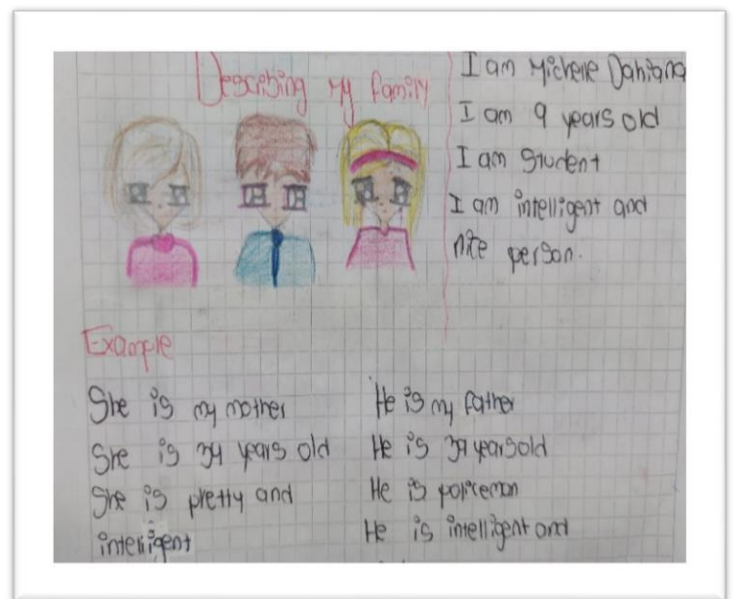 Describing My family
I am Michelle Dahiana
I am 9 years old
I am Student
I am intelligent and
nice person.
Example
She is my mother
She is 34 years old
She is pretty and
intelligent
He is my father
He is 39 years old
He is policeman
He is intelligent and